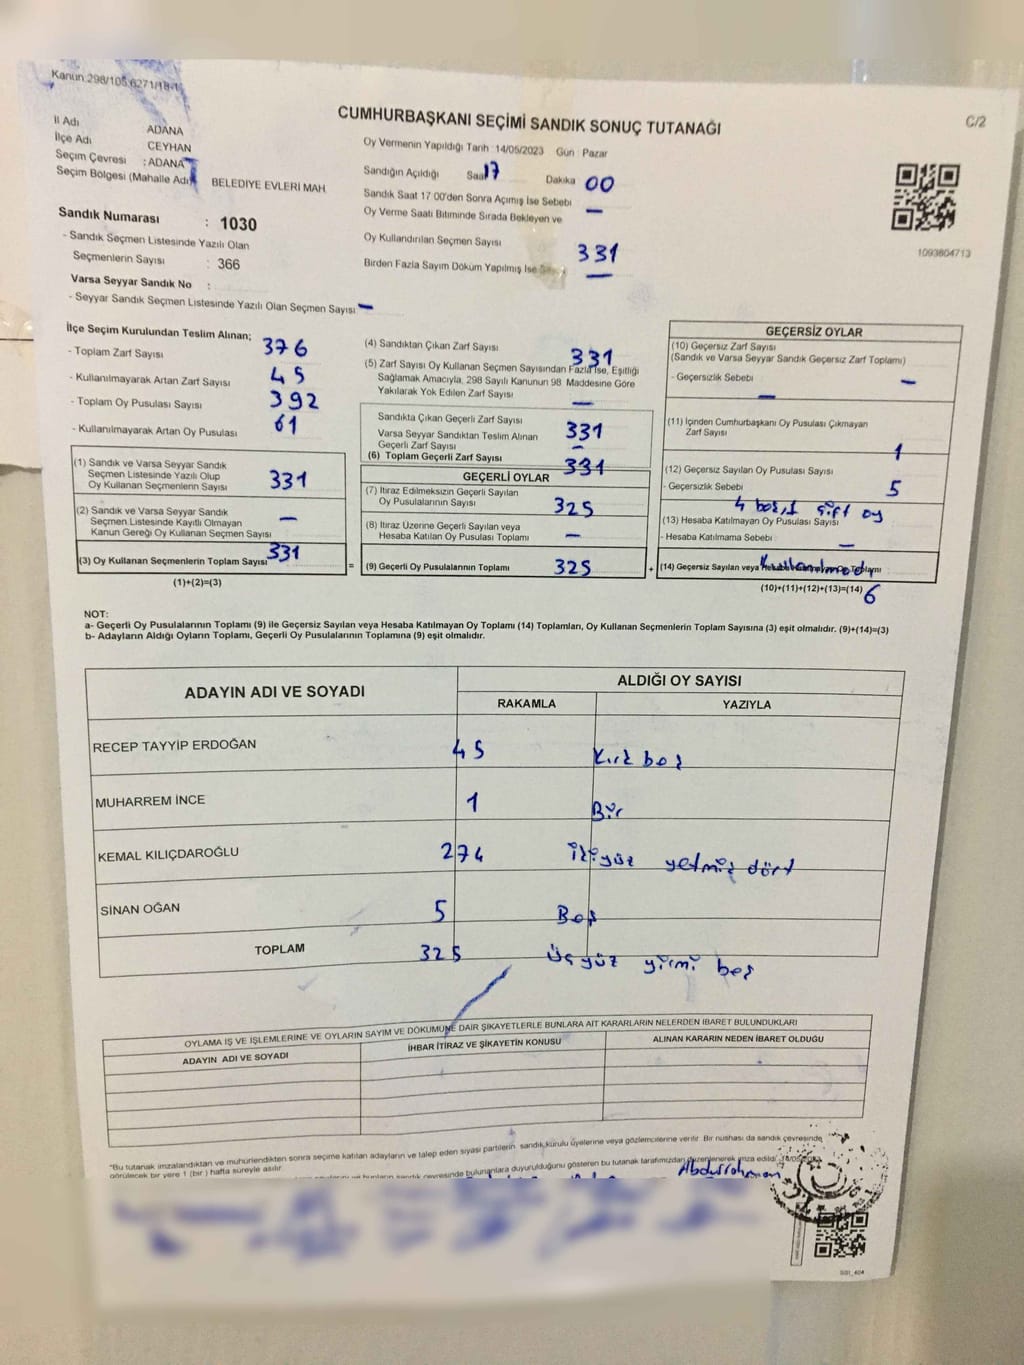 Kanun:298/105,6271/18-1
CUMHURBAŞKANI SEÇİMİ SANDIK SONUÇ TUTANAĞI
C/2
İl Adı ADANA
İlçe Adı CEYHAN
Seçim Çevresi :ADANA
Seçim Bölgesi (Mahalle Adı BELEDIYE EVLERİ MAH.
Sandık Numarası : 1030
- Sandık Seçmen Listesinde Yazılı Olan
Seçmenlerin Sayısı : 366
Varsa Seyyar Sandık No :
- Seyyar Sandık Seçmen Listesinde Yazılı Olan Seçmen Sayısı –
Oy Vermenin Yapıldığı Tarih :14/05/2023 Gün : Pazar
Sandığın Açıldığı Saat 17 Dakika 00
Sandık Saat 17.00'den Sonra Açımış İse Sebebi –
Oy Verme Saati Bitiminde Sırada Bekleyen ve
Oy Kullandırılan Seçmen Sayısı 331
Birden Fazla Sayım Döküm Yapılmış İse –
1093804713
İlçe Seçim Kurulundan Teslim Alınan;
- Toplam Zarf Sayısı 376
- Kullanılmayarak Artan Zarf Sayısı 45
- Toplam Oy Pusulası Sayısı 392
- Kullanılmayarak Artan Oy Pusulası 61
(1) Sandık ve Varsa Seyyar Sandık
Seçmen Listesinde Yazılı Olup
Oy Kullanan Seçmenlerin Sayısı 331
(2) Sandık ve Varsa Seyyar Sandık
Seçmen Listesinde Kayıtlı Olmayan
Kanun Gereği Oy Kullanan Seçmen Sayısı –
(3) Oy Kullanan Seçmenlerin Toplam Sayısı 331
(1)+(2)=(3)
=
(4) Sandıktan Çıkan Zarf Sayısı 331
(5) Zarf Sayısı Oy Kullanan Seçmen Sayısından Fazla İse, Eşitliği
Sağlamak Amacıyla, 298 Sayılı Kanunun 98. Maddesine Göre
Yakılarak Yok Edilen Zarf Sayısı –
Sandıkta Çıkan Geçerli Zarf Sayısı 331
Varsa Seyyar Sandıktan Teslim Alınan
Geçerli Zarf Sayısı –
(6) Toplam Geçerli Zarf Sayısı 331
GEÇERLİ OYLAR
(7) İtiraz Edilmeksizin Geçerli Sayılan
Oy Pusulalarının Sayısı 325
(8) İtiraz Üzerine Geçerli Sayılan veya
Hesaba Katılan Oy Pusulası Toplamı –
(9) Geçerli Oy Pusulalarının Toplamı 325
+
GEÇERSİZ OYLAR
(10) Geçersiz Zarf Sayısı
(Sandık ve Varsa Seyyar Sandık Geçersiz Zarf Toplamı) –
- Geçersizlik Sebebi –
(11) İçinden Cumhurbaşkanı Oy Pusulası Çıkmayan
Zarf Sayısı 1
(12) Geçersiz Sayılan Oy Pusulası Sayısı 5
- Geçersizlik Sebebi
4 boş,1 çift oy
(13) Hesaba Katılmayan Oy Pusulası Sayısı –
- Hesaba Katılmama Sebebi
Kullanılmadı
(14) Geçersiz Sayılan veya Hesaba Katılmayan Oy Toplamı
(10)+(11)+(12)+(13)=(14) 6
NOT:
a- Geçerli Oy Pusulalarının Toplamı (9) ile Geçersiz Sayılan veya Hesaba Katılmayan Oy Toplamı (14) Toplamları, Oy Kullanan Seçmenlerin Toplam Sayısına (3) eşit olmalıdır. (9)+(14)=(3)
b- Adayların Aldığı Oyların Toplamı, Geçerli Oy Pusulalarının Toplamına (9) eşit olmalıdır.
ADAYIN ADI VE SOYADI ALDIĞI OY SAYISI
RAKAMLA YAZIYLA
RECEP TAYYİP ERDOĞAN 45 Kırk beş
MUHARREM İNCE 1 Bir
KEMAL KILIÇDAROĞLU 274 İkiyüz yetmiş dört
SİNAN OĞAN 5 Beş
TOPLAM 325 Üçyüz yirmi beş
OYLAMA İŞ VE İŞLEMLERİNE VE OYLARIN SAYIM VE DÖKÜMÜNE DAİR ŞİKAYETLERLE BUNLARA AİT KARARLARIN NELERDEN İBARET BULUNDUKLARI
ADAYIN ADI VE SOYADI İHBAR İTİRAZ VE ŞİKAYETİN KONUSU ALINAN KARARIN NEDEN İBARET OLDUĞU
"Bu tutanak imzalandıktan ve mühürlendikten sonra seçime katılan adayların ve talep eden siyasi partilerin sandık kurulu üyelerine veya gözlemcilerine verilir. Bir nushası da sandık çevresinde
görülecek bir yere 1 (bir ) hafta süreyle asılır.
bulunanlara duyurulduğunu gösteren bu tutanak tarafımızdan düzenlenerek imza edildi
Abdurrahman